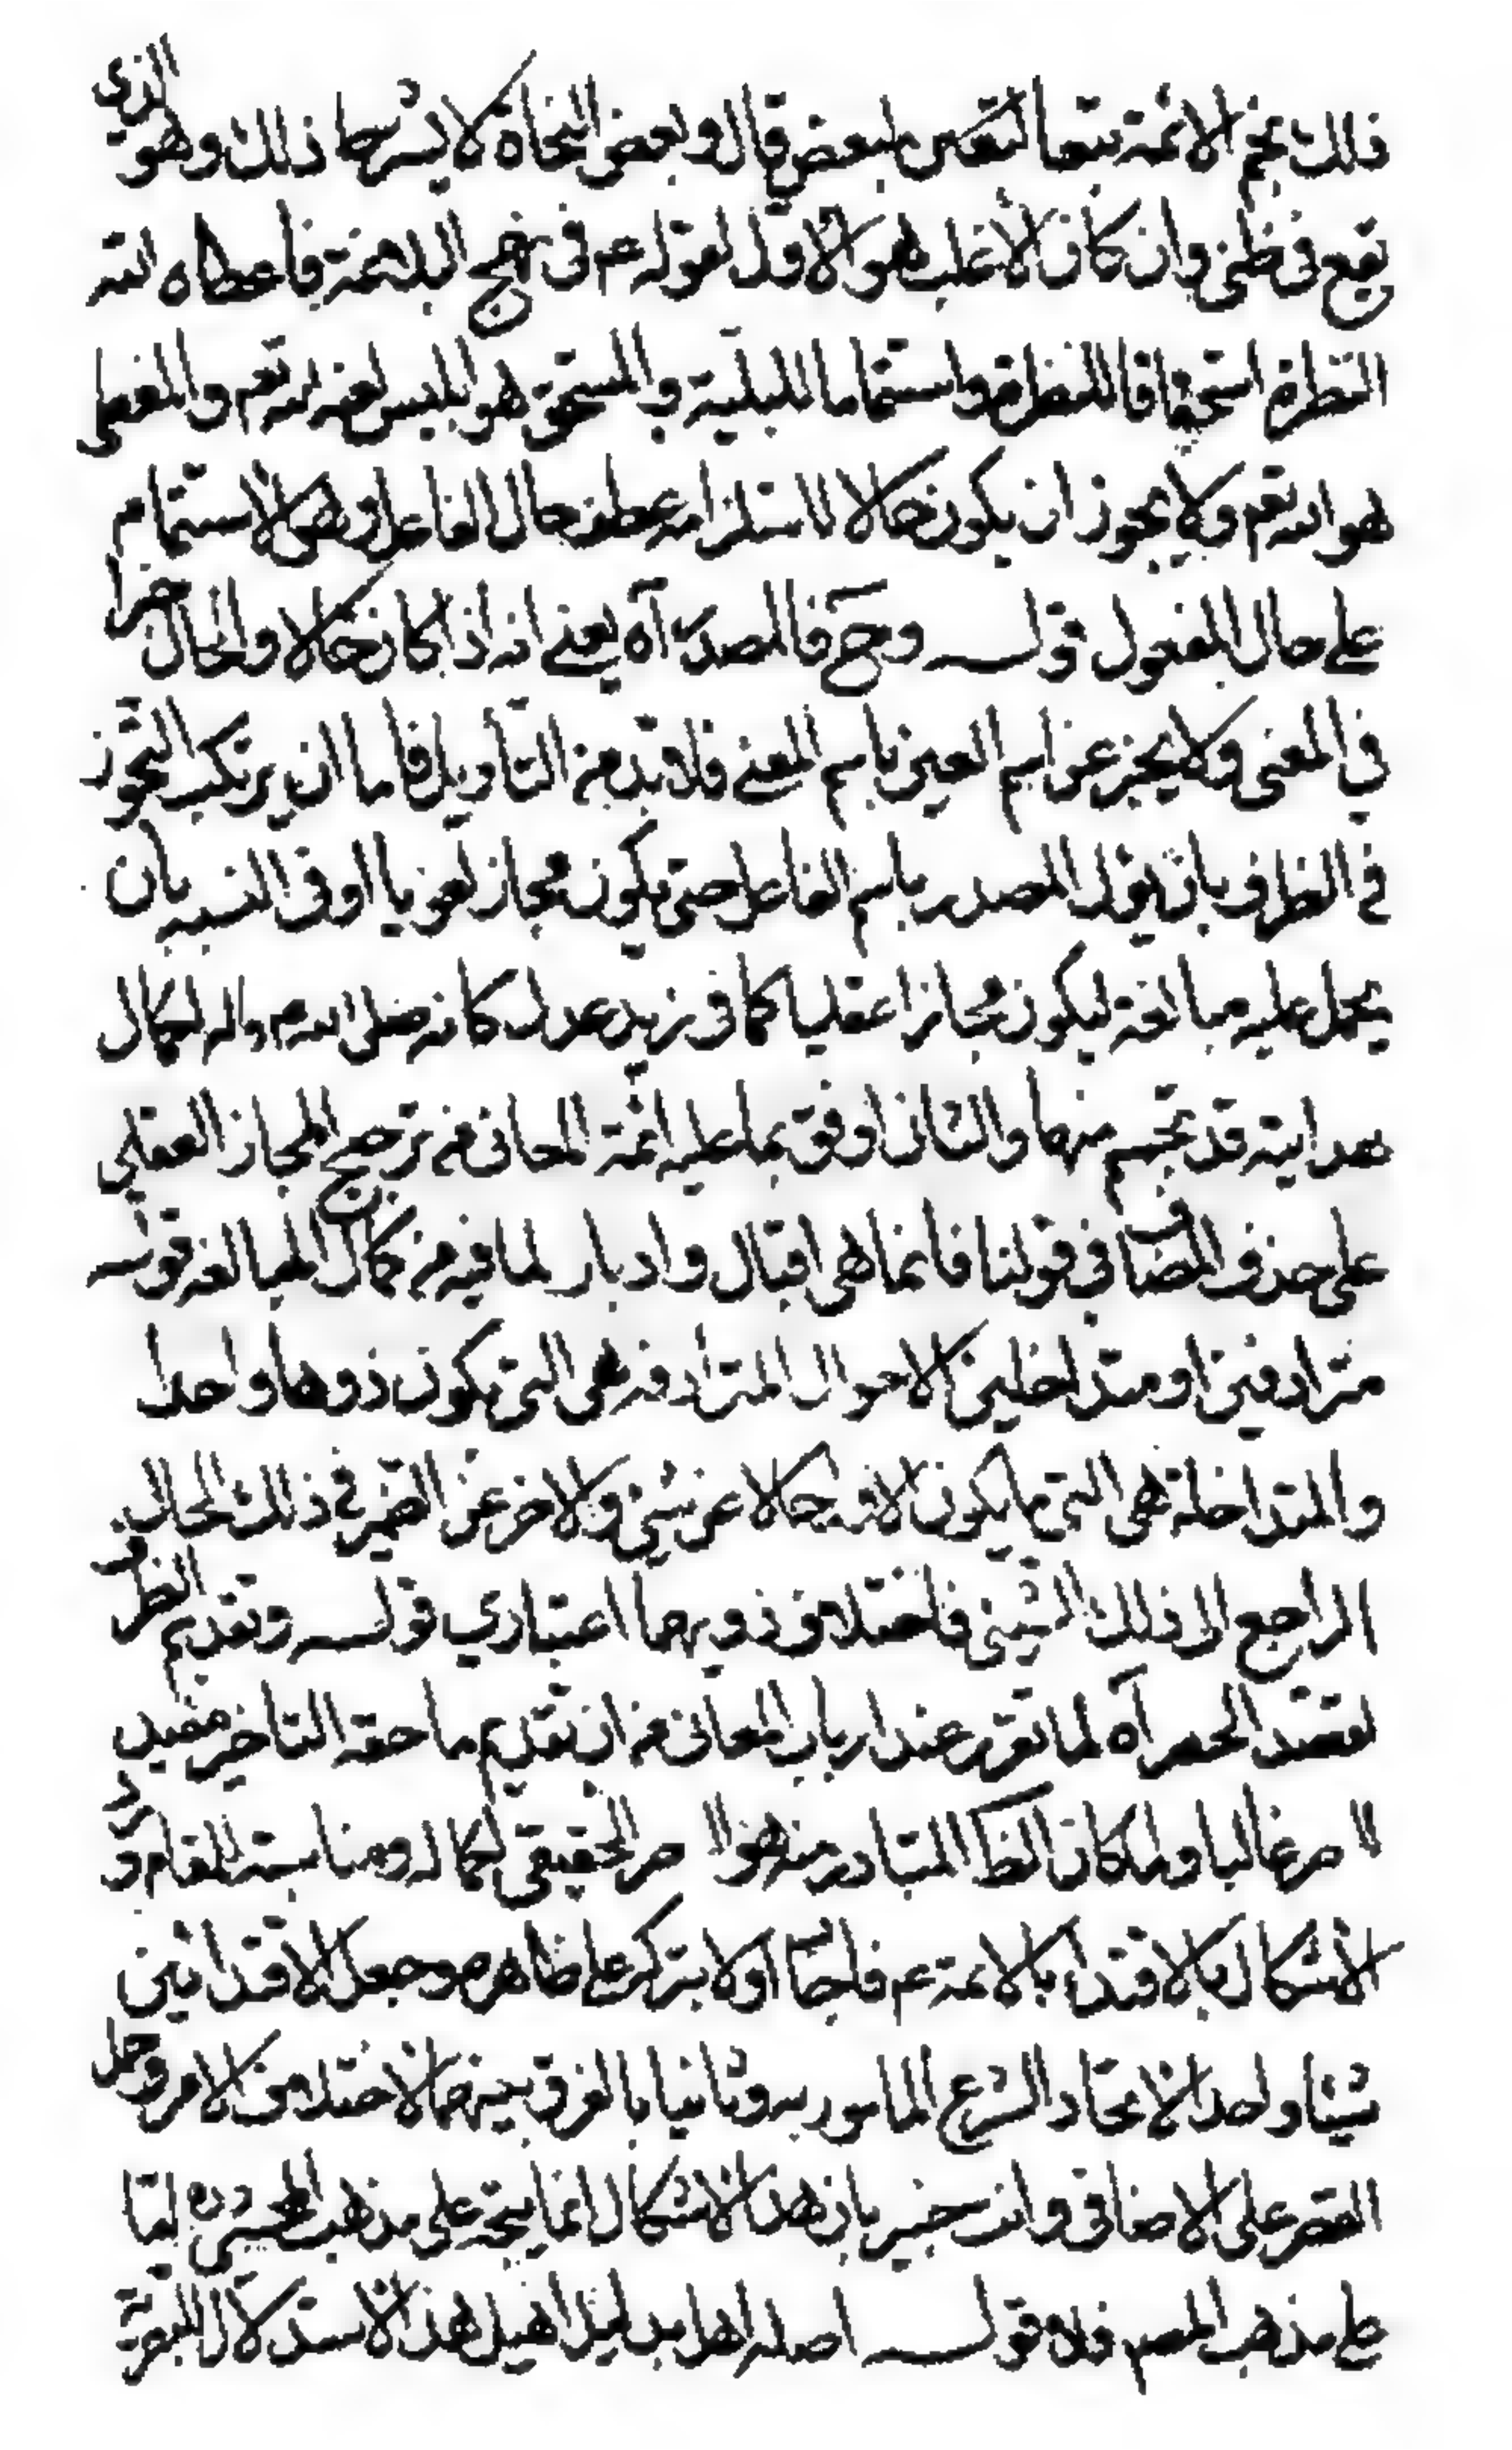 ذلك نجم الائمة تبعا لبعض قال وبعض النحاة لا يشترط ذلك وهو الذي
يقع في ظني وان كان الأغلب هو الاول لقوله عم في نهج البلاغة فأعطاه الله
النظرة استحقاقا للنظرة واستتماما للبلية والمستحق هو ابليس لعنه الله تعم والمعطى
هو الله تعم ولا يجوز ان يكون حالا لاستلزامه عطف حال الفاعل وهي الاستتمام
على حال المفعول قوله وح فالمصدر آه يعني انه اذا كان حالا والحال خبرا
في المعنى ولا يخبر عن اسم العين باسم المعنى فلا بد من التأويل فاما ان يرتكب التجوز
في الظرف بان يؤل المصدر باسم الفاعل حتى يكون مجاز لغويا او في النسبه بان
يحمل عليه مبالغة ليكون مجازا عقليا كما في زيد عدل كانه صلى الله ع واله لكمال
هدايته قد تجسم منها والثاني اوفق بما عليه ائمة المعاني من ترجيح المجاز العقلي
على حذف المضاف في قولنا فانما هي اقبال وادبار لما فيه من كمال المبالغه قوله
مترادفين او متداخلين الاحوال المترادفه هي التي يكون ذوها واحدا
والمتداخلة هي التي يكون الاول حالا عن شيئ والاخر عن الضمير في ذلك الحال
الراجع الى ذلك الشيئ فاختلاف ذويهما اعتباري قوله وتقديم الظرف
لقصد الحصر آه لما تقرر عند ارباب المعاني من ان تقديم ما حقه التاخير مفيد
الحصر غالبا ولما كان الظ المتبادر منه هو الحصر الحقيقي لكماله ومناسبته المقام ورد
الاشكال بالاقتداء بالائمة عم فاجاب اولا بتركه على ظاهره وجعل الاقتدائين
شيئا واحدا لاتحاد الشرع المامور به وثانيا بالفرق بينهما لاختلاف الامر وحمل
القصر على الاضافي وانت خبير بان هذا الاشكال انما يتجه على مذهب المحشي ره لما
على مذهب المصم فلا قوله اصله اهل بدليل اهيل هذا الاستدلال للبصرية